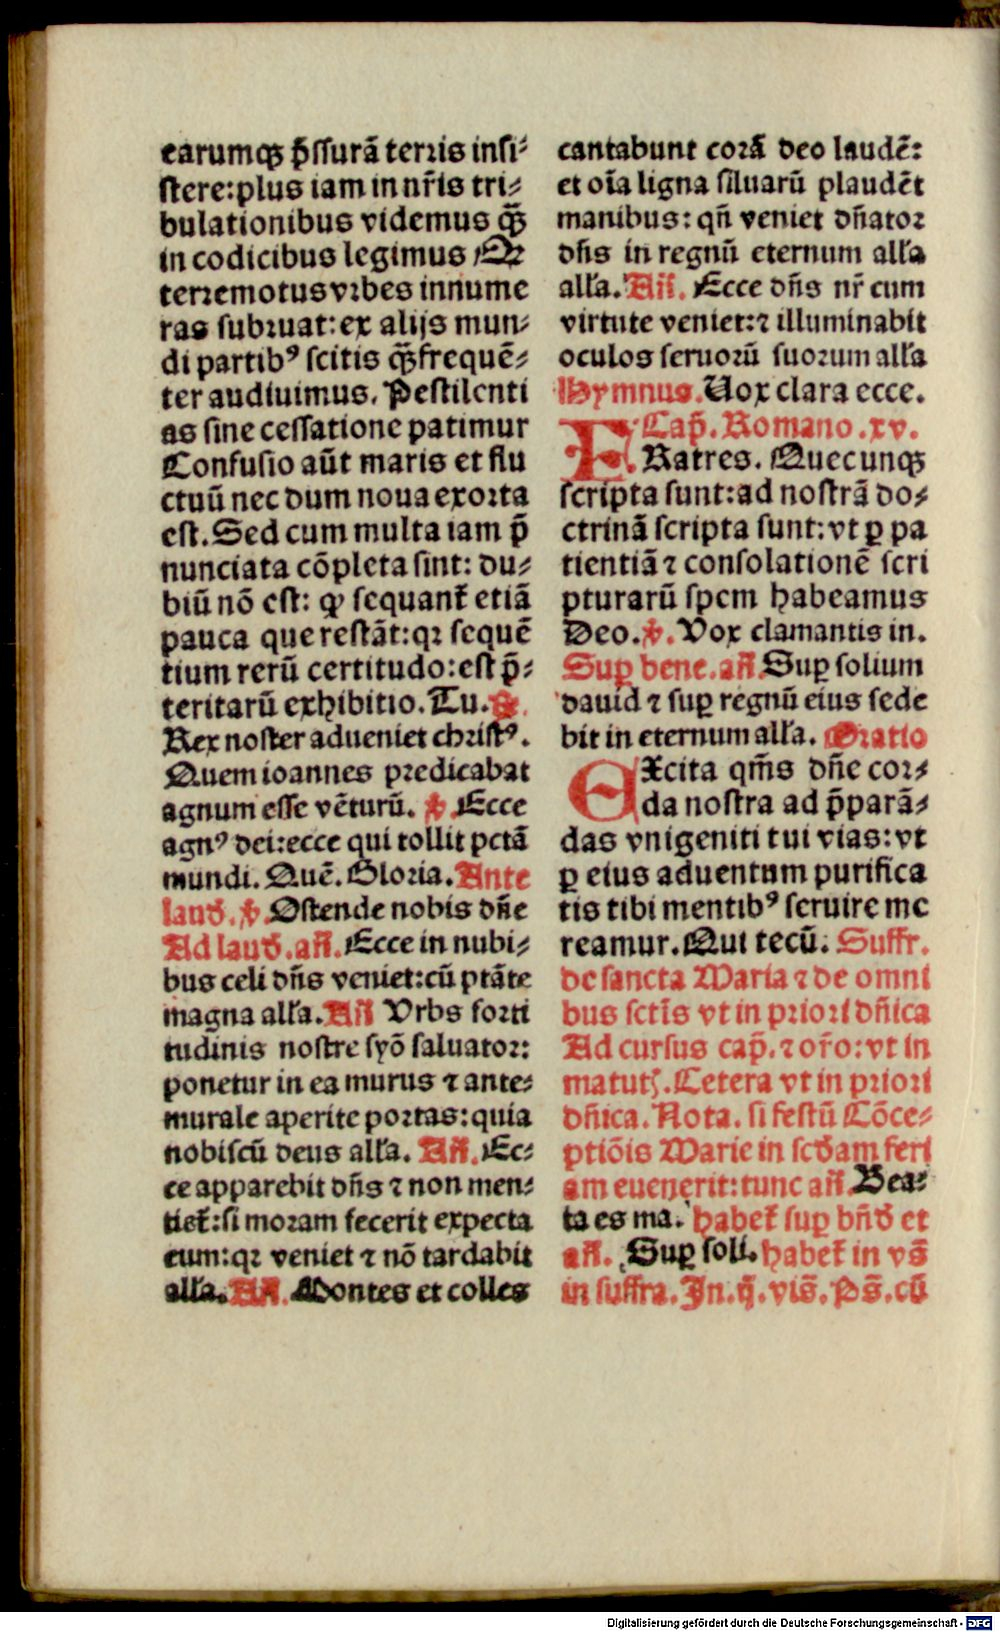 earumqȝ p̄ssurā terris insi⸗
stere: plus iam in nr̄is tri⸗
bulationibus videmus qȝ̄
in codicibus legimus Qꝛ
terremotus vrbes innume
ras subruat: ex alijs mun⸗
di partibꝰ scitis qȝ̄ frequē⸗
ter audiuimus. Pestilenti
as sine cessatione patimur
Confusio aūt maris et flu
ctuū nec dum noua exorta
est. Sed cum multa iam p̄
nunciata cōpleta sint: du⸗
biū nō est: ꝙ sequant̄ etiā
pauca que restāt: qꝛ sequē
tium rerū certitudo: est p̄⸗
teritarū exhibitio. Tu. ℞.
Rex noster adueniet christꝰ.
Quem ioannes predicabat
agnum esse vēturū. ℣. Ecce
agnꝰ dei: ecce qui tollit pctā
mundi. Quē. Gloria. Ante
laud̄. ℣. Ostende nobis dn̄e
Ad laud̄. an̄. Ecce in nubi⸗
bus celi dn̄s veniet: cū ptāte
magna all'a. An̄ Vrbs forti
tudinis nostre syō saluator:
ponetur in ea murus ⁊ ante⸗
murale aperite portas: quia
nobiscū deus all'a. An̄. Ec⸗
ce apparebit dn̄s ⁊ non men⸗
tiet̄: si moram fecerit expecta
eum: qꝛ veniet ⁊ nō tardabit
all'a. An̄. Montes et colles
cantabunt corā deo laudē:
et oīa ligna siluarū plaudēt
manibus: qn̄ veniet dn̄ator
dn̄s in regnū eternum all'a
all'a. An̄. Ecce dn̄s nr̄ cum
virtute veniet: ⁊ illuminabit
oculos seruorū suorum all'a
Hymnus. Uox clara ecce.
Cap̄. Romano. xv.
FRatres. Quecunqȝ
scripta sunt: ad nostrā do⸗
ctrinā scripta sunt: vt ꝑ pa
tientiā ⁊ consolationē scri
pturarū spem habeamus
Deo. ℣. Vox clamantis in.
Suꝑ bene. an̄. Suꝑ solium
dauid ⁊ suꝑ regnū eius sede
bit in eternum all'a. Oratio
EXcita qm̄s dn̄e cor⸗
da nostra ad p̄parā⸗
das vnigeniti tui vias: vt
ꝑ eius aduentum purifica
tis tibi mentibꝰ seruire me
reamur. Qui tecū. Suffr.
de sancta Maria ⁊ de omni
bus sct̄is vt in priori dn̄ica
Ad cursus cap̄. ⁊ or̄o: vt in
matutꝭ. Cetera vt in priori
dn̄ica. Nota. si festū Cōce⸗
ptiōis Marie in scd̄am feri
am euenerit: tunc an̄. Bea⸗
ta es ma. habet̄ suꝑ bn̄d̄ et
an̄. Suꝑ soli. habet̄ in vs̄
in suffra. In. q̄. vis̄. Ps̄. cū
Digitalisierung gefördert durch die Deutsche Forschungsgemeinschaft - DFG